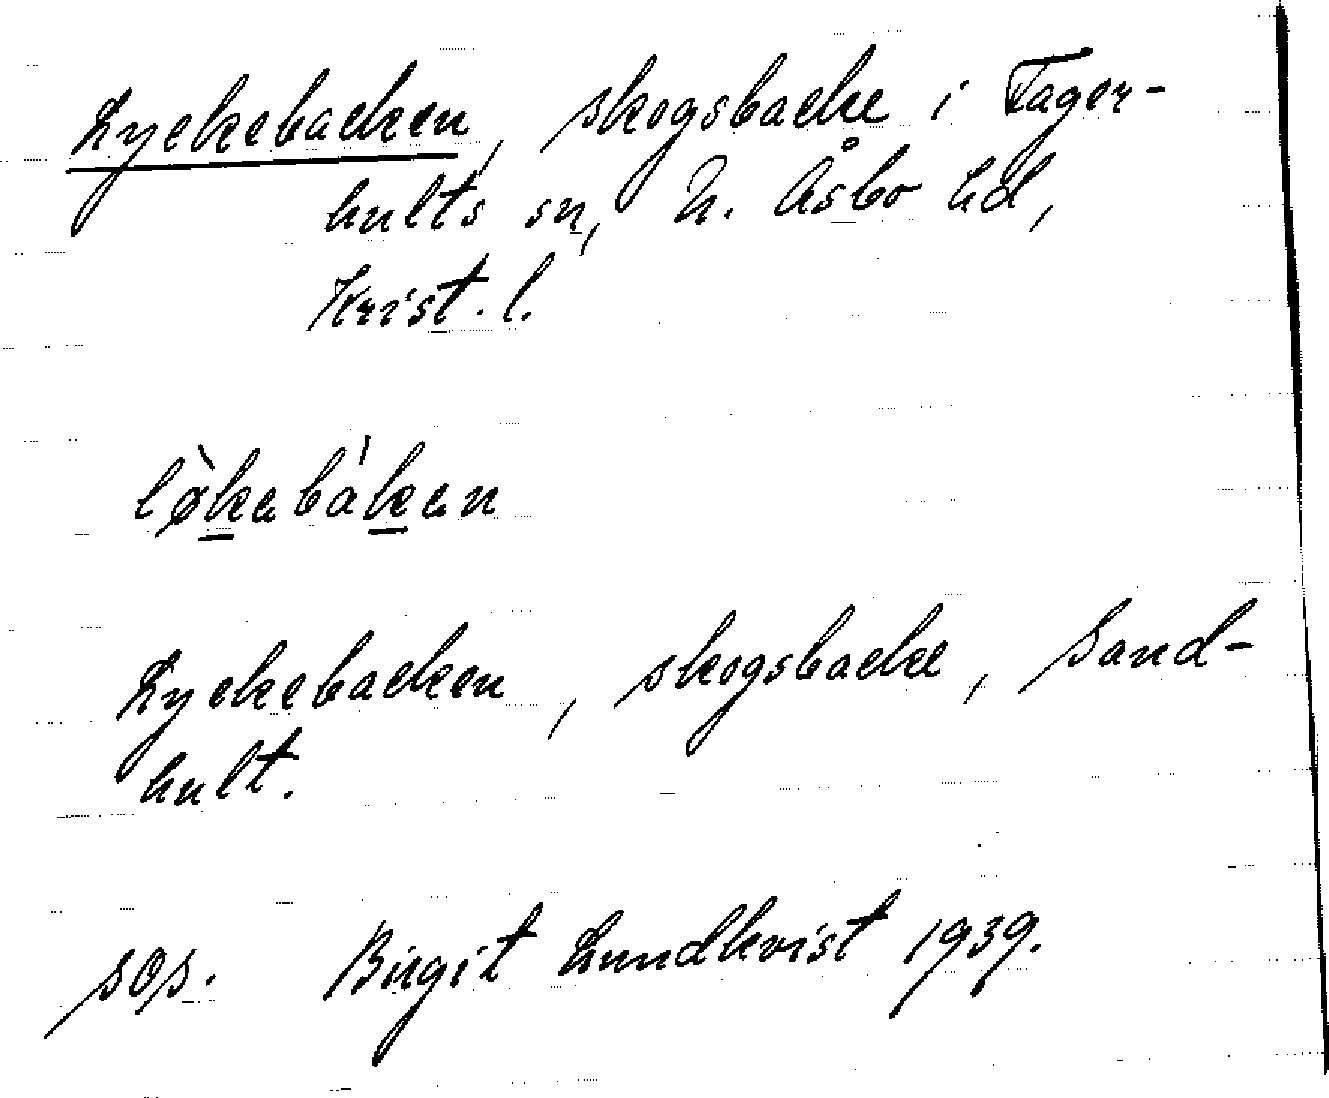 Lyckebacken, skogsbacke i Tåger-
hults sn, N. Åsbo hd,
Krist. l.
lø̀kebáken
Lyckebacken, skogsbacke, Sand-
hult.
sos. Birgit Lundkvist 1939.